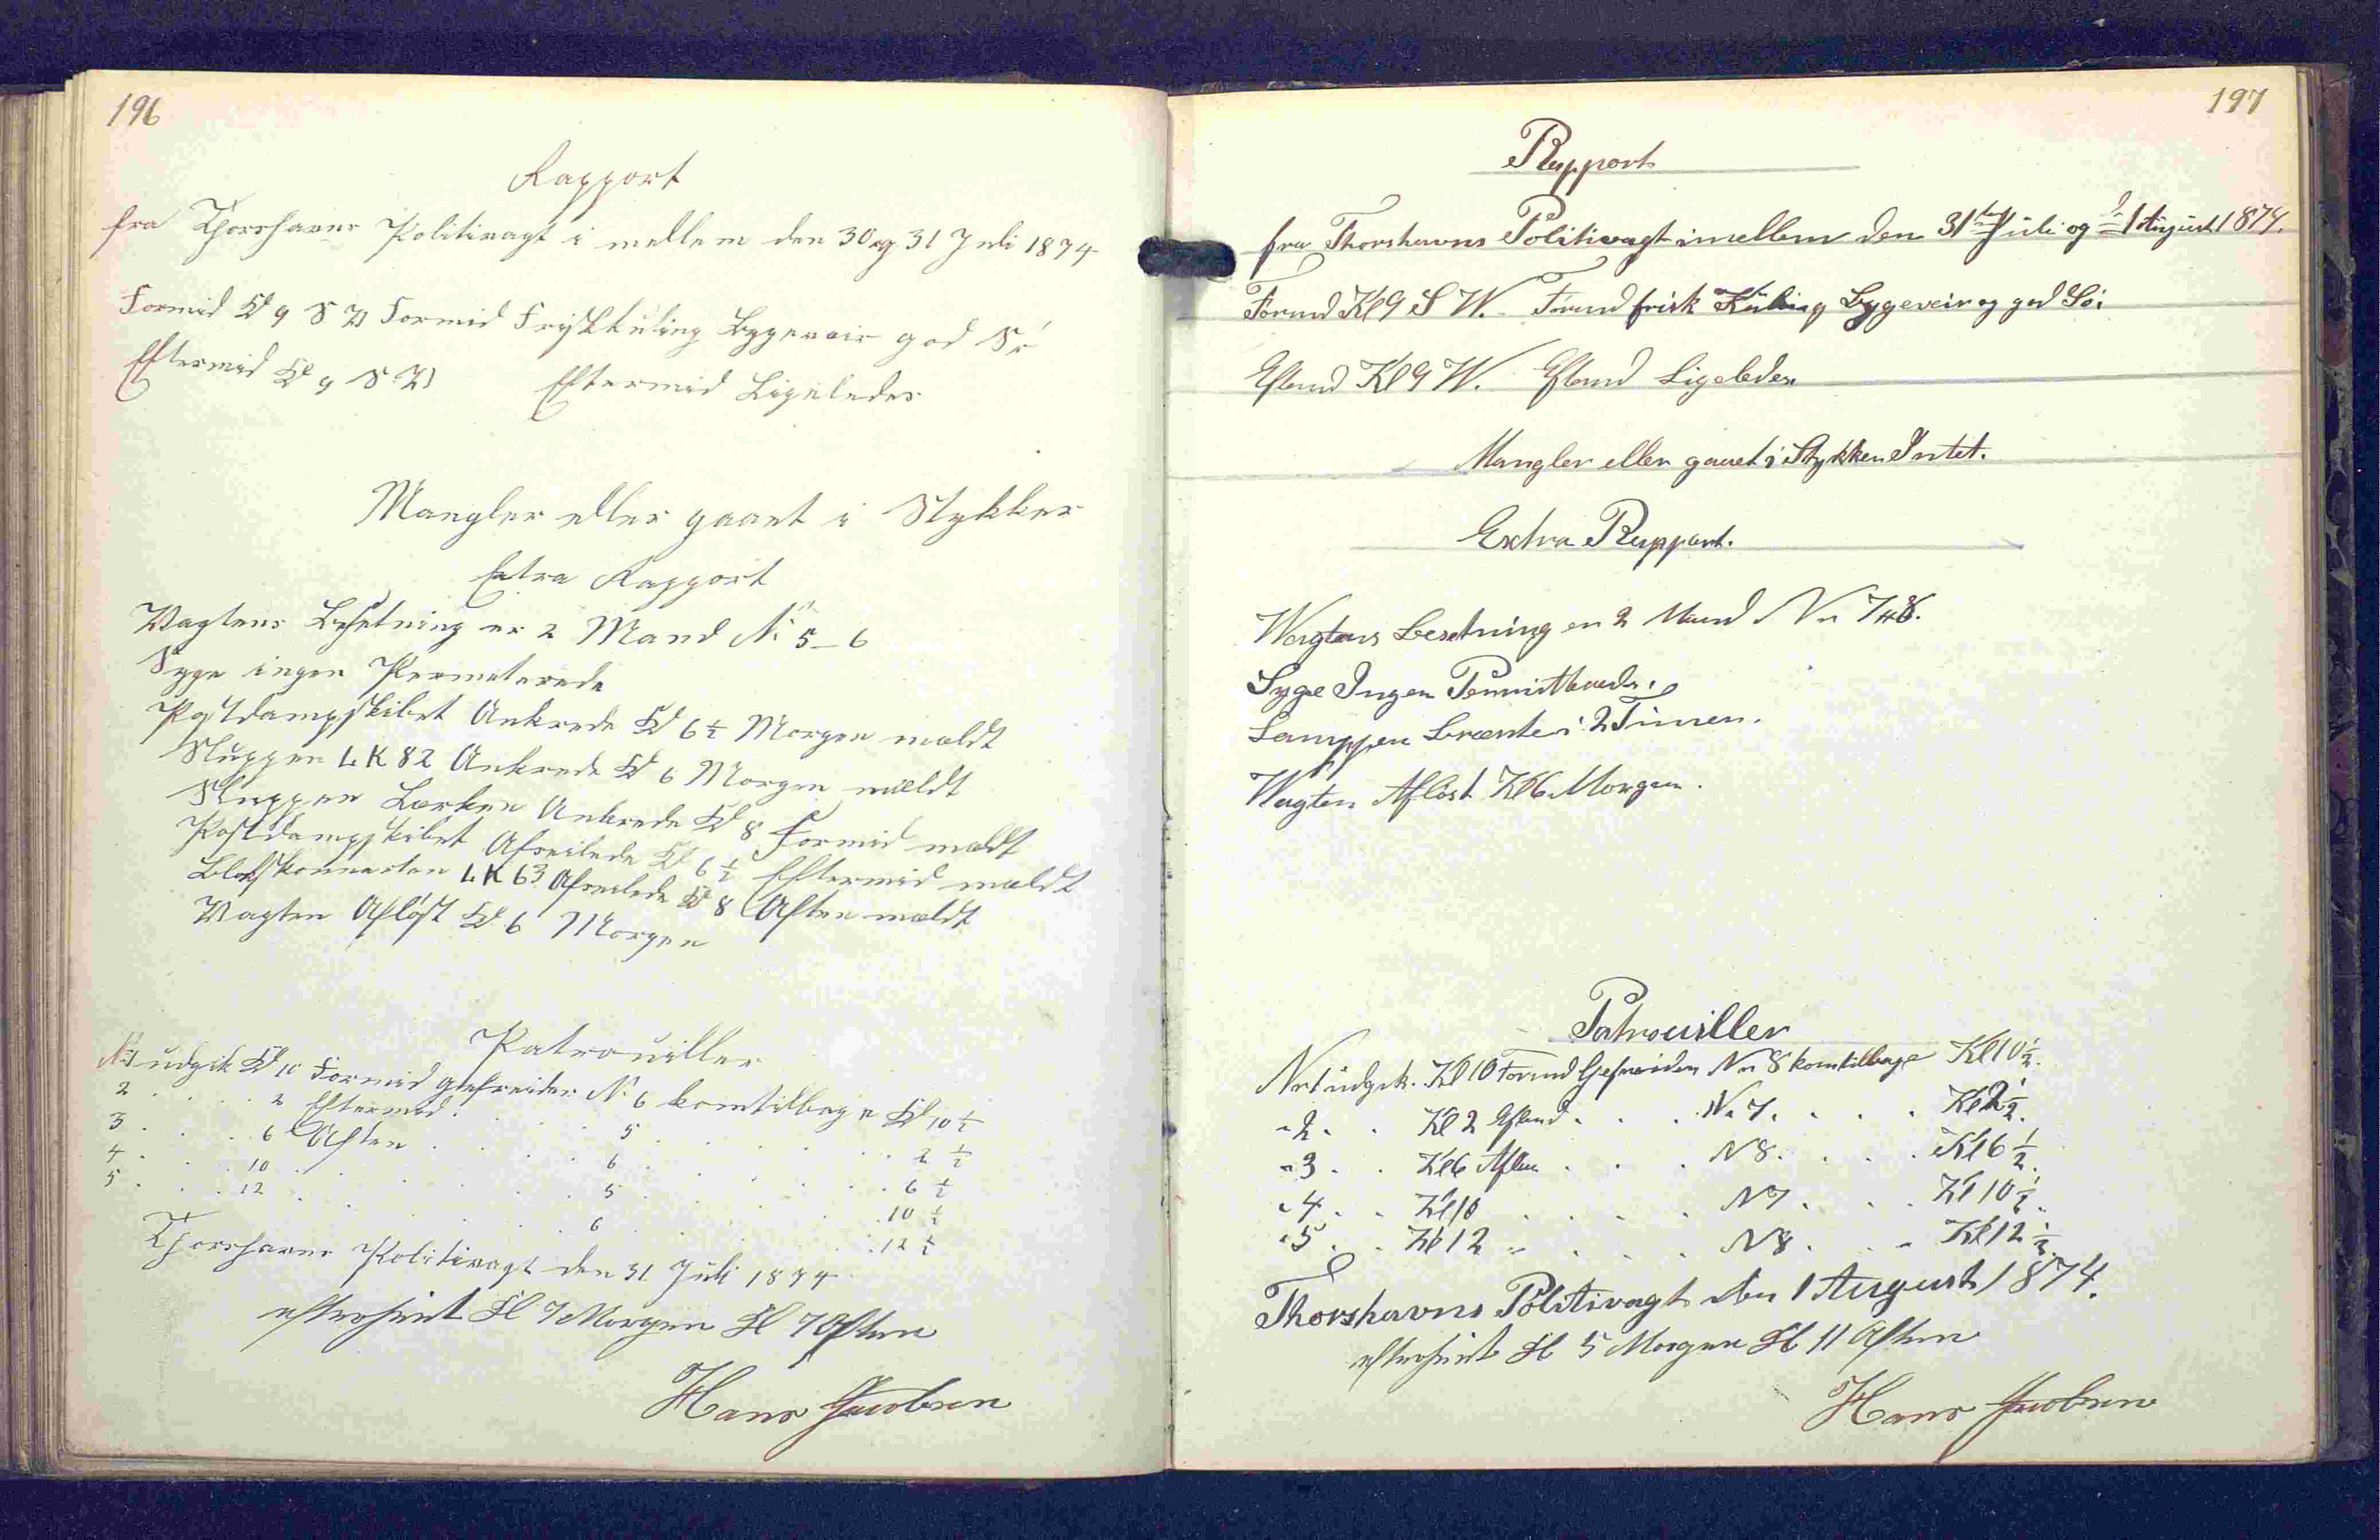 196
Rapport
fra Thorshavns Politivagt i mellem den 30 og 31 Juli 1874
Formid Kl 9 S W Formid Frisk Kuling Bygeveir god Sø
Eftermid Kl 9 S W Eftermid Ligeledes
Mangler eller gaaet i Stykker
Extra Rapport
Vagtens Besetning er 2 Mand No 5-6
Syge ingen Permeterede
Postdampskibet Ankrede Kl 6 1/2 Morgen mældt
Sluppen L K 82 Ankrede Kl 6 Morgen mældt
Sluppen Lærken Ankrede Kl 8 Formid mældt
Postdampskibet Afseilede Kl 6 1/2 Eftermid mældt
L K 63 Afseilede Kl 8 Aften mældt
Vagten Afløst Kl 6 Morgen
Patrouiller
No 1 udgik Kl 10 Formid Gefreider No 6 kom tilbage Kl 10 1/2
2 . . . . 2 Eftermid . . . . 5 . . . . 2 1/2
3 . . . . 6 Aften . . . . 6 . . . . 6 1/2
4 . . . . 10 . . . . 5 . . . . 10 1/2
5 . . . . 12 . . . . 6 . . . . 12 1/2
Thorshavns Politivagt den 31 Juli 1874
efterseet Kl 7 Morgen Kl 7 Aften
Hans Jacobsen
197
Rapport
fra Thorshavns Politivagt imellem den 31te Juli og 1 August 1874.
Formd Kl 9 S W. Formd frisk Kuling Bygeveir og god Sø.
Eftmd Kl 9 W. Eftmd Ligeledes
Mangler eller gaaet i Stykker Intet.
Extra Rapport.
Wagtens Besetning er 2 Mand Nr 7 & 8.
Syge Ingen
Lamppen Brænte i 2 Timer.
Wagten Afløst Kl 6 Morgen.
Patrouiller
Nr 1 udgik. Kl 10 Formd Gefreiden Nr 8 kom tilbage Kl 10 1/2.
" 2 . . Kl 2 Eftmd . . . Nr 7 . . . . Kl 2 1/2.
" 3 . . Kl 6 Aften . . . N 8 . . . . Kl 6 1/2.
" 4 . . Kl 10 . . . . N 7 . . . . Kl 10 1/2.
" 5 . . Kl 12 . . . . N 8 . . . Kl 12 1/2.
Thorshavns Politivagt den 1 August 1874.
efterseet Kl 5 Morgen Kl 11 Aften
Hans Jacobsen